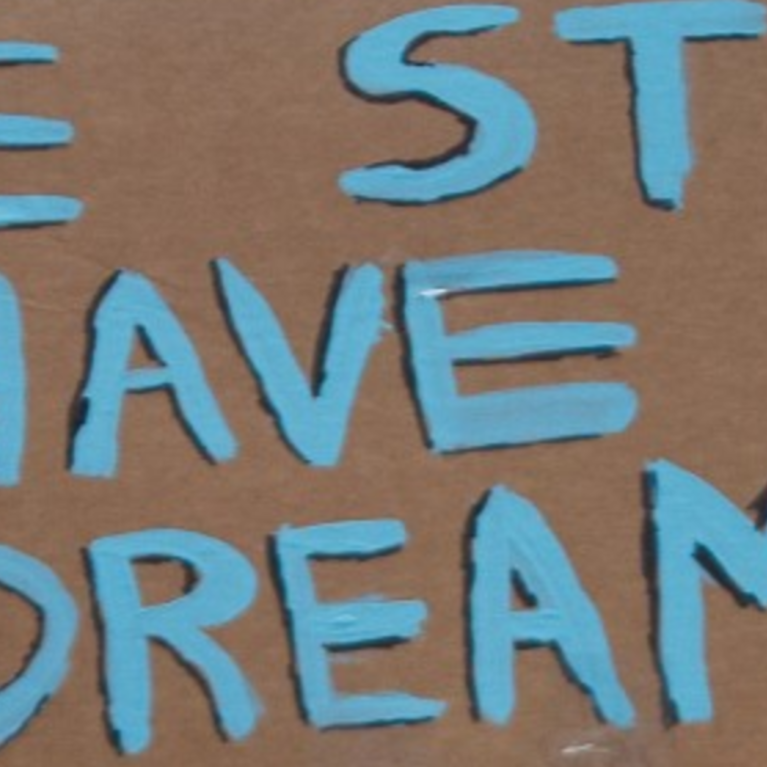 E ST
HAVE
DREAM